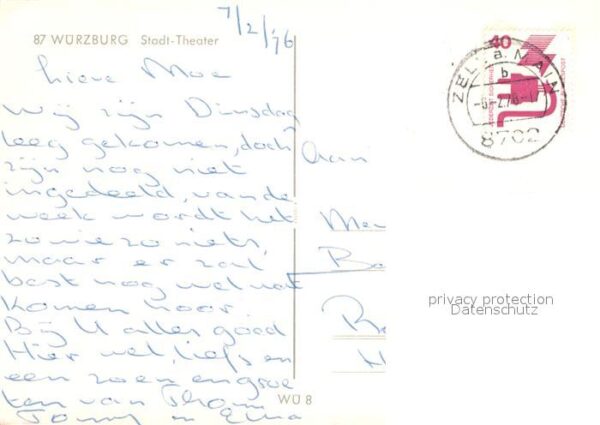 7/2/'76
87 WÜRZBURG Stadt-Theater
Lieve Moe
Wij zijn Dinsdag
leeg gekomen, doch
zijn nog niet
ingedeeld, van de
week wordt het
zowiezo niets,
maar er zal
best nog wel wat
komen hoor.
Bij U alles goed
Hier wel, liefs en
een zoen en groe
ten van Thom
Tonny en
Aan
40
ZELL a. MAIN
b
8702
privacy protection
Datenschutz
WÜ 8